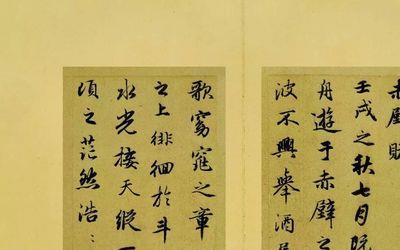 赤壁賦
壬戌之秋七月既
舟遊于赤壁之
波不興舉酒屬
歌窈窕之章
之上徘徊於斗
水光接天縱一
頃之茫然浩〻